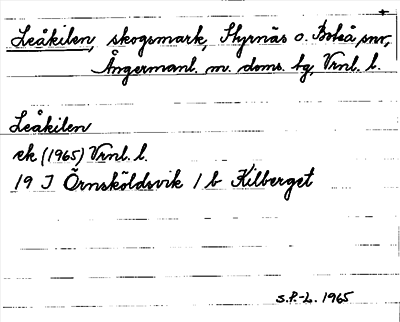 Leåkilen, skogsmark, Styrnäs o. Boteå snr,
Ångermanl. m. doms. hg, Vrnl. l.
Leåkilen
ek (1965) Vrnl. l.
19 J Örnsköldsvik 1 b Kilberget
S.P.-L. 1965